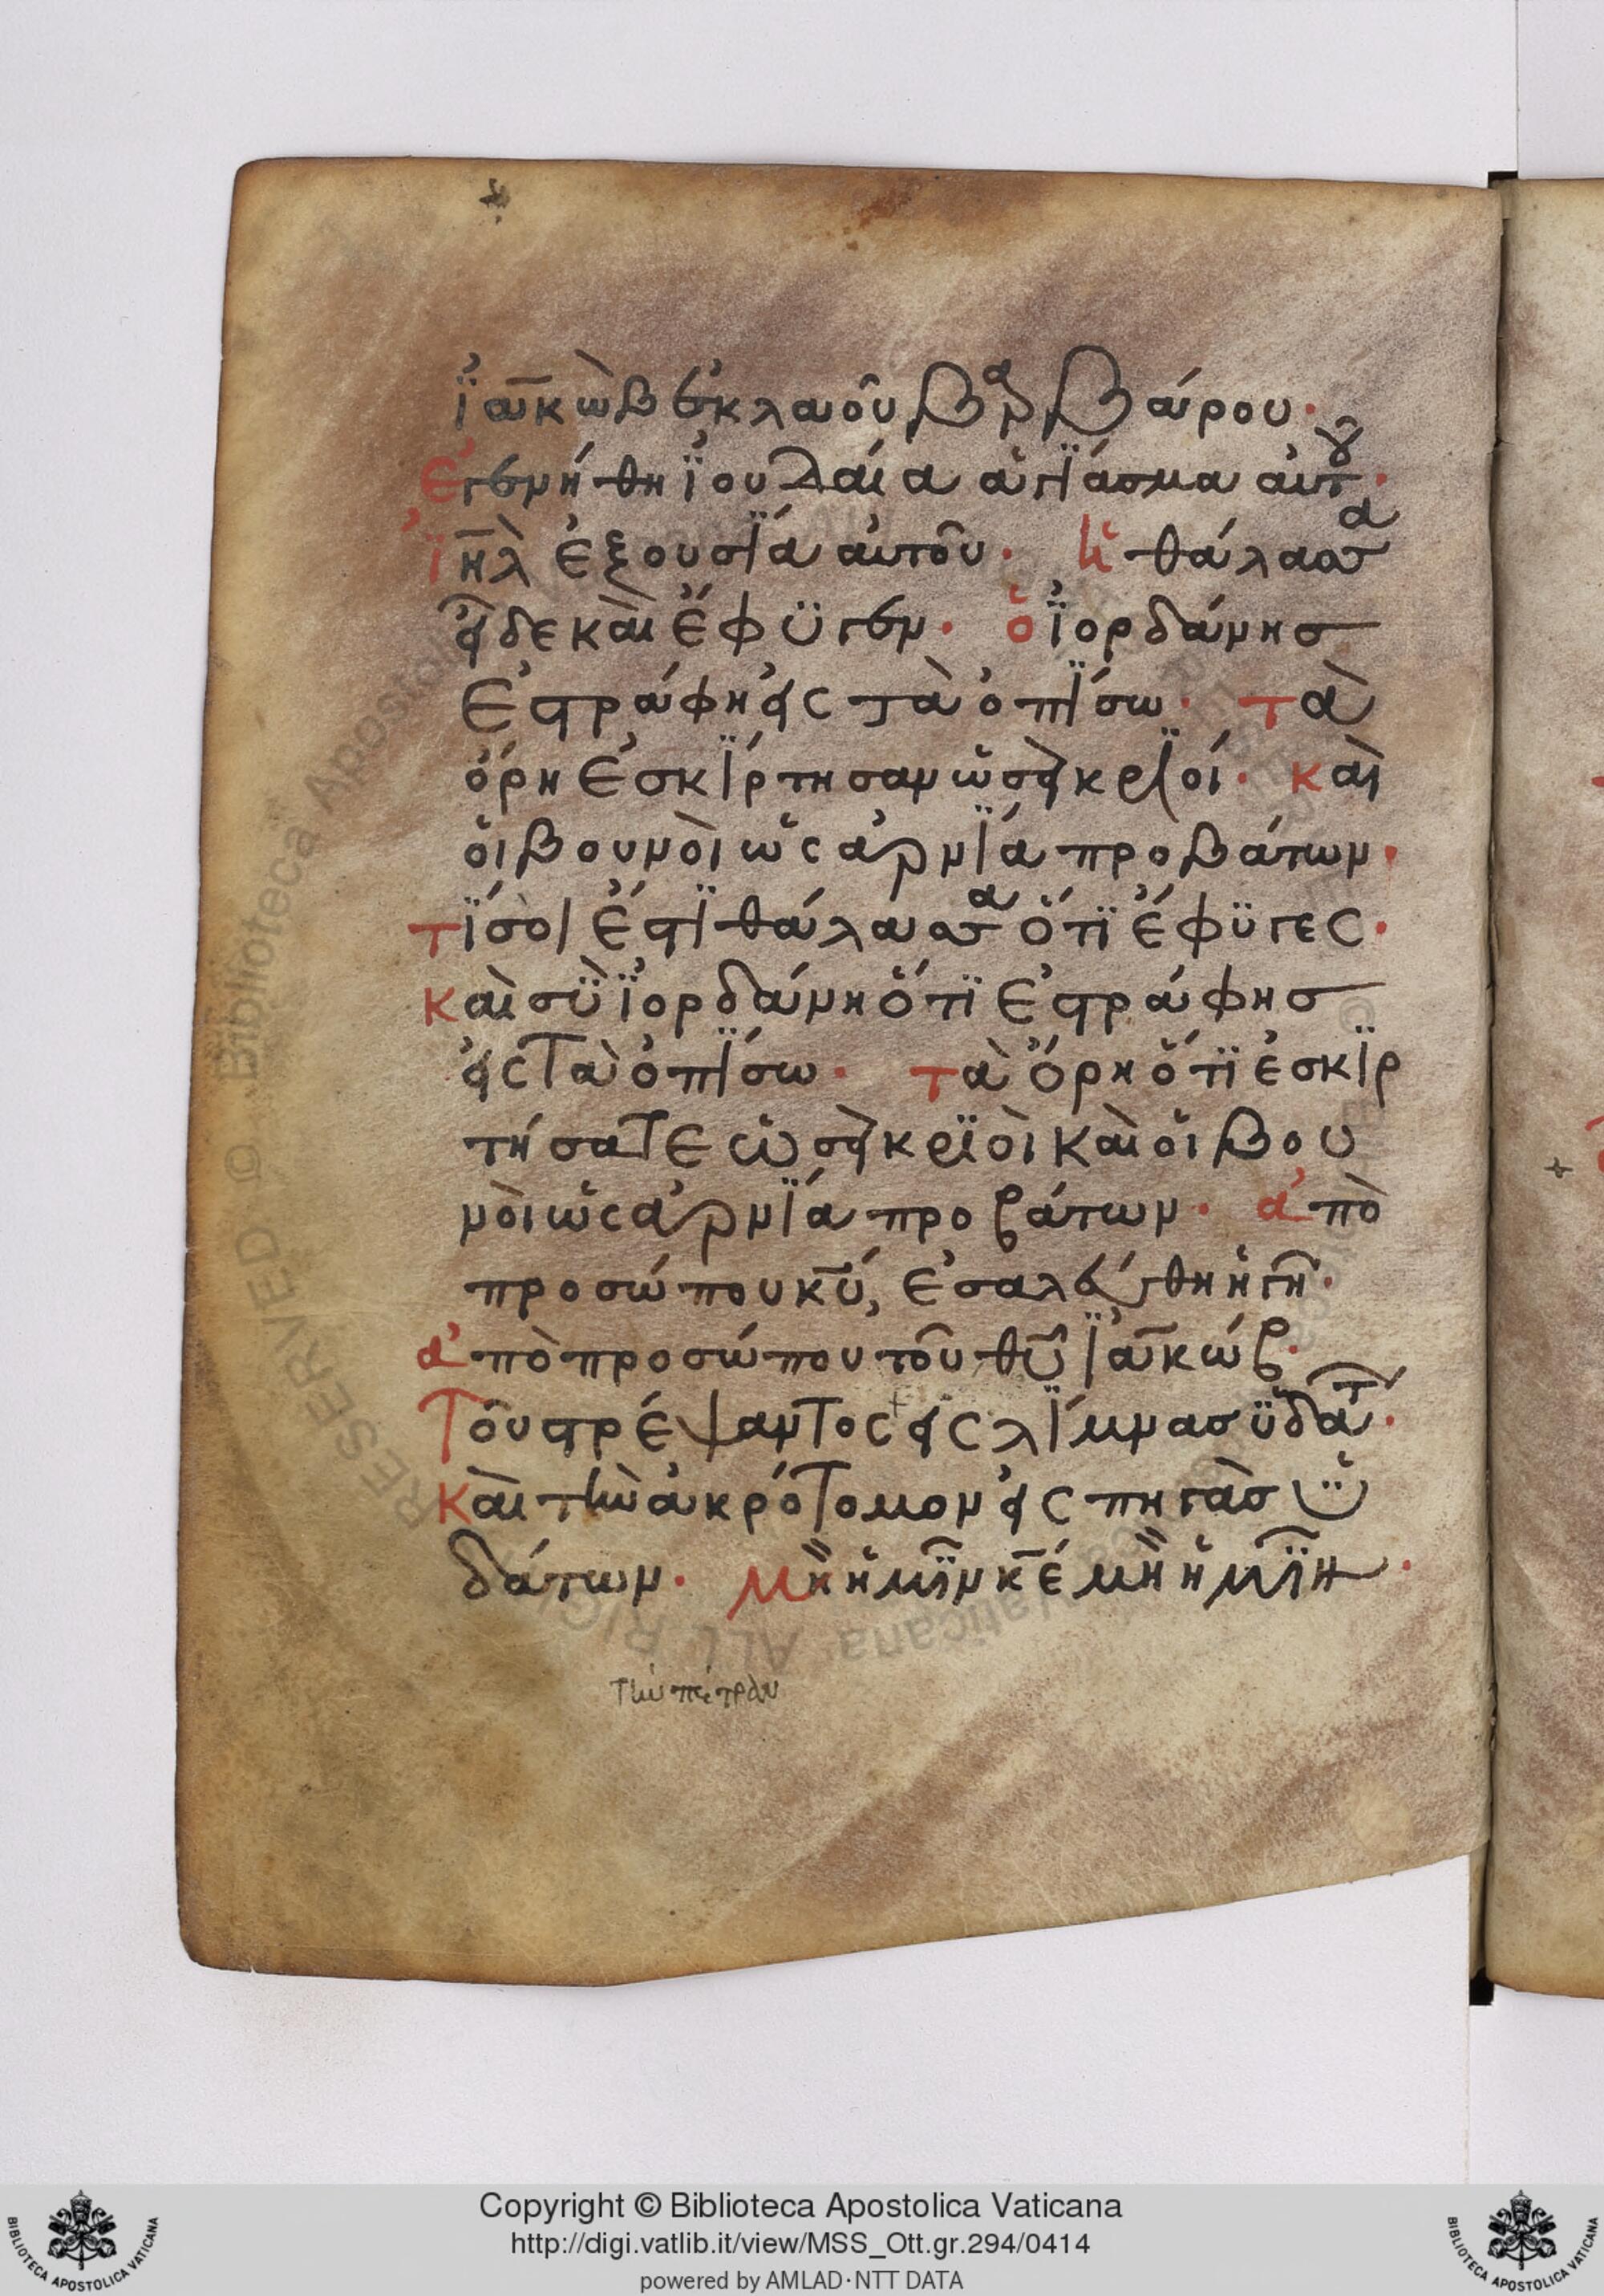 ἰακὼβ ἐκ λαοῦ βαρβάρου·
Ἐγενήθη ἰουδαία ἁγίασμα αὐτοῦ·
ἰηλ ἐξουσία αὐτοῦ· ἡ θάλασσα
εἶδε καὶ ἔφυγεν· ὁ ἰορδάνησ
Ἐστράφη εἰς τὰ ὀπίσω· τὰ
ὄρη ἐσκίρτησαν ὡσεὶ κριοί· καὶ
οἱ βουνοὶ ὡς ἀρνία προβάτων·
τί σοι ἐστὶ θάλασσα ὅτι ἔφυγες·
καὶ σὺ ἰορδάνη ὅτι ἐστράφησ
εἰς τὰ ὀπίσω· τὰ ὄρη ὅτι ἐσκιρ
τήσατε ὡσεὶ κριοὶ καὶ οἱ βου
νοὶ ὡς ἀρνία προβάτων· ἀπὸ
προσώπου κυ, ἐσαλεύθη ἡ γῆ·
ἀπὸ προσώπου τοῦ θυ ἰακώβ·
Τοῦ στρέψαντος εἰς λίμνασ ὑδάτ·
Καὶ τὴν ἀκρότομον εἰς πηγὰσ ὑ
δάτων· μὴ ἡμῖν κε μὴ ἡμῖν·
τὴν πέτραν
Copyright © Biblioteca Apostolica Vaticana
http://digi.vatlib.it/view/MSS_Ott.gr.294/0414
powered by AMLAD·NTT DATA
BIBLIOTECA APOSTOLICA VATICANA
BIBLIOTECA APOSTOLICA VATICANA